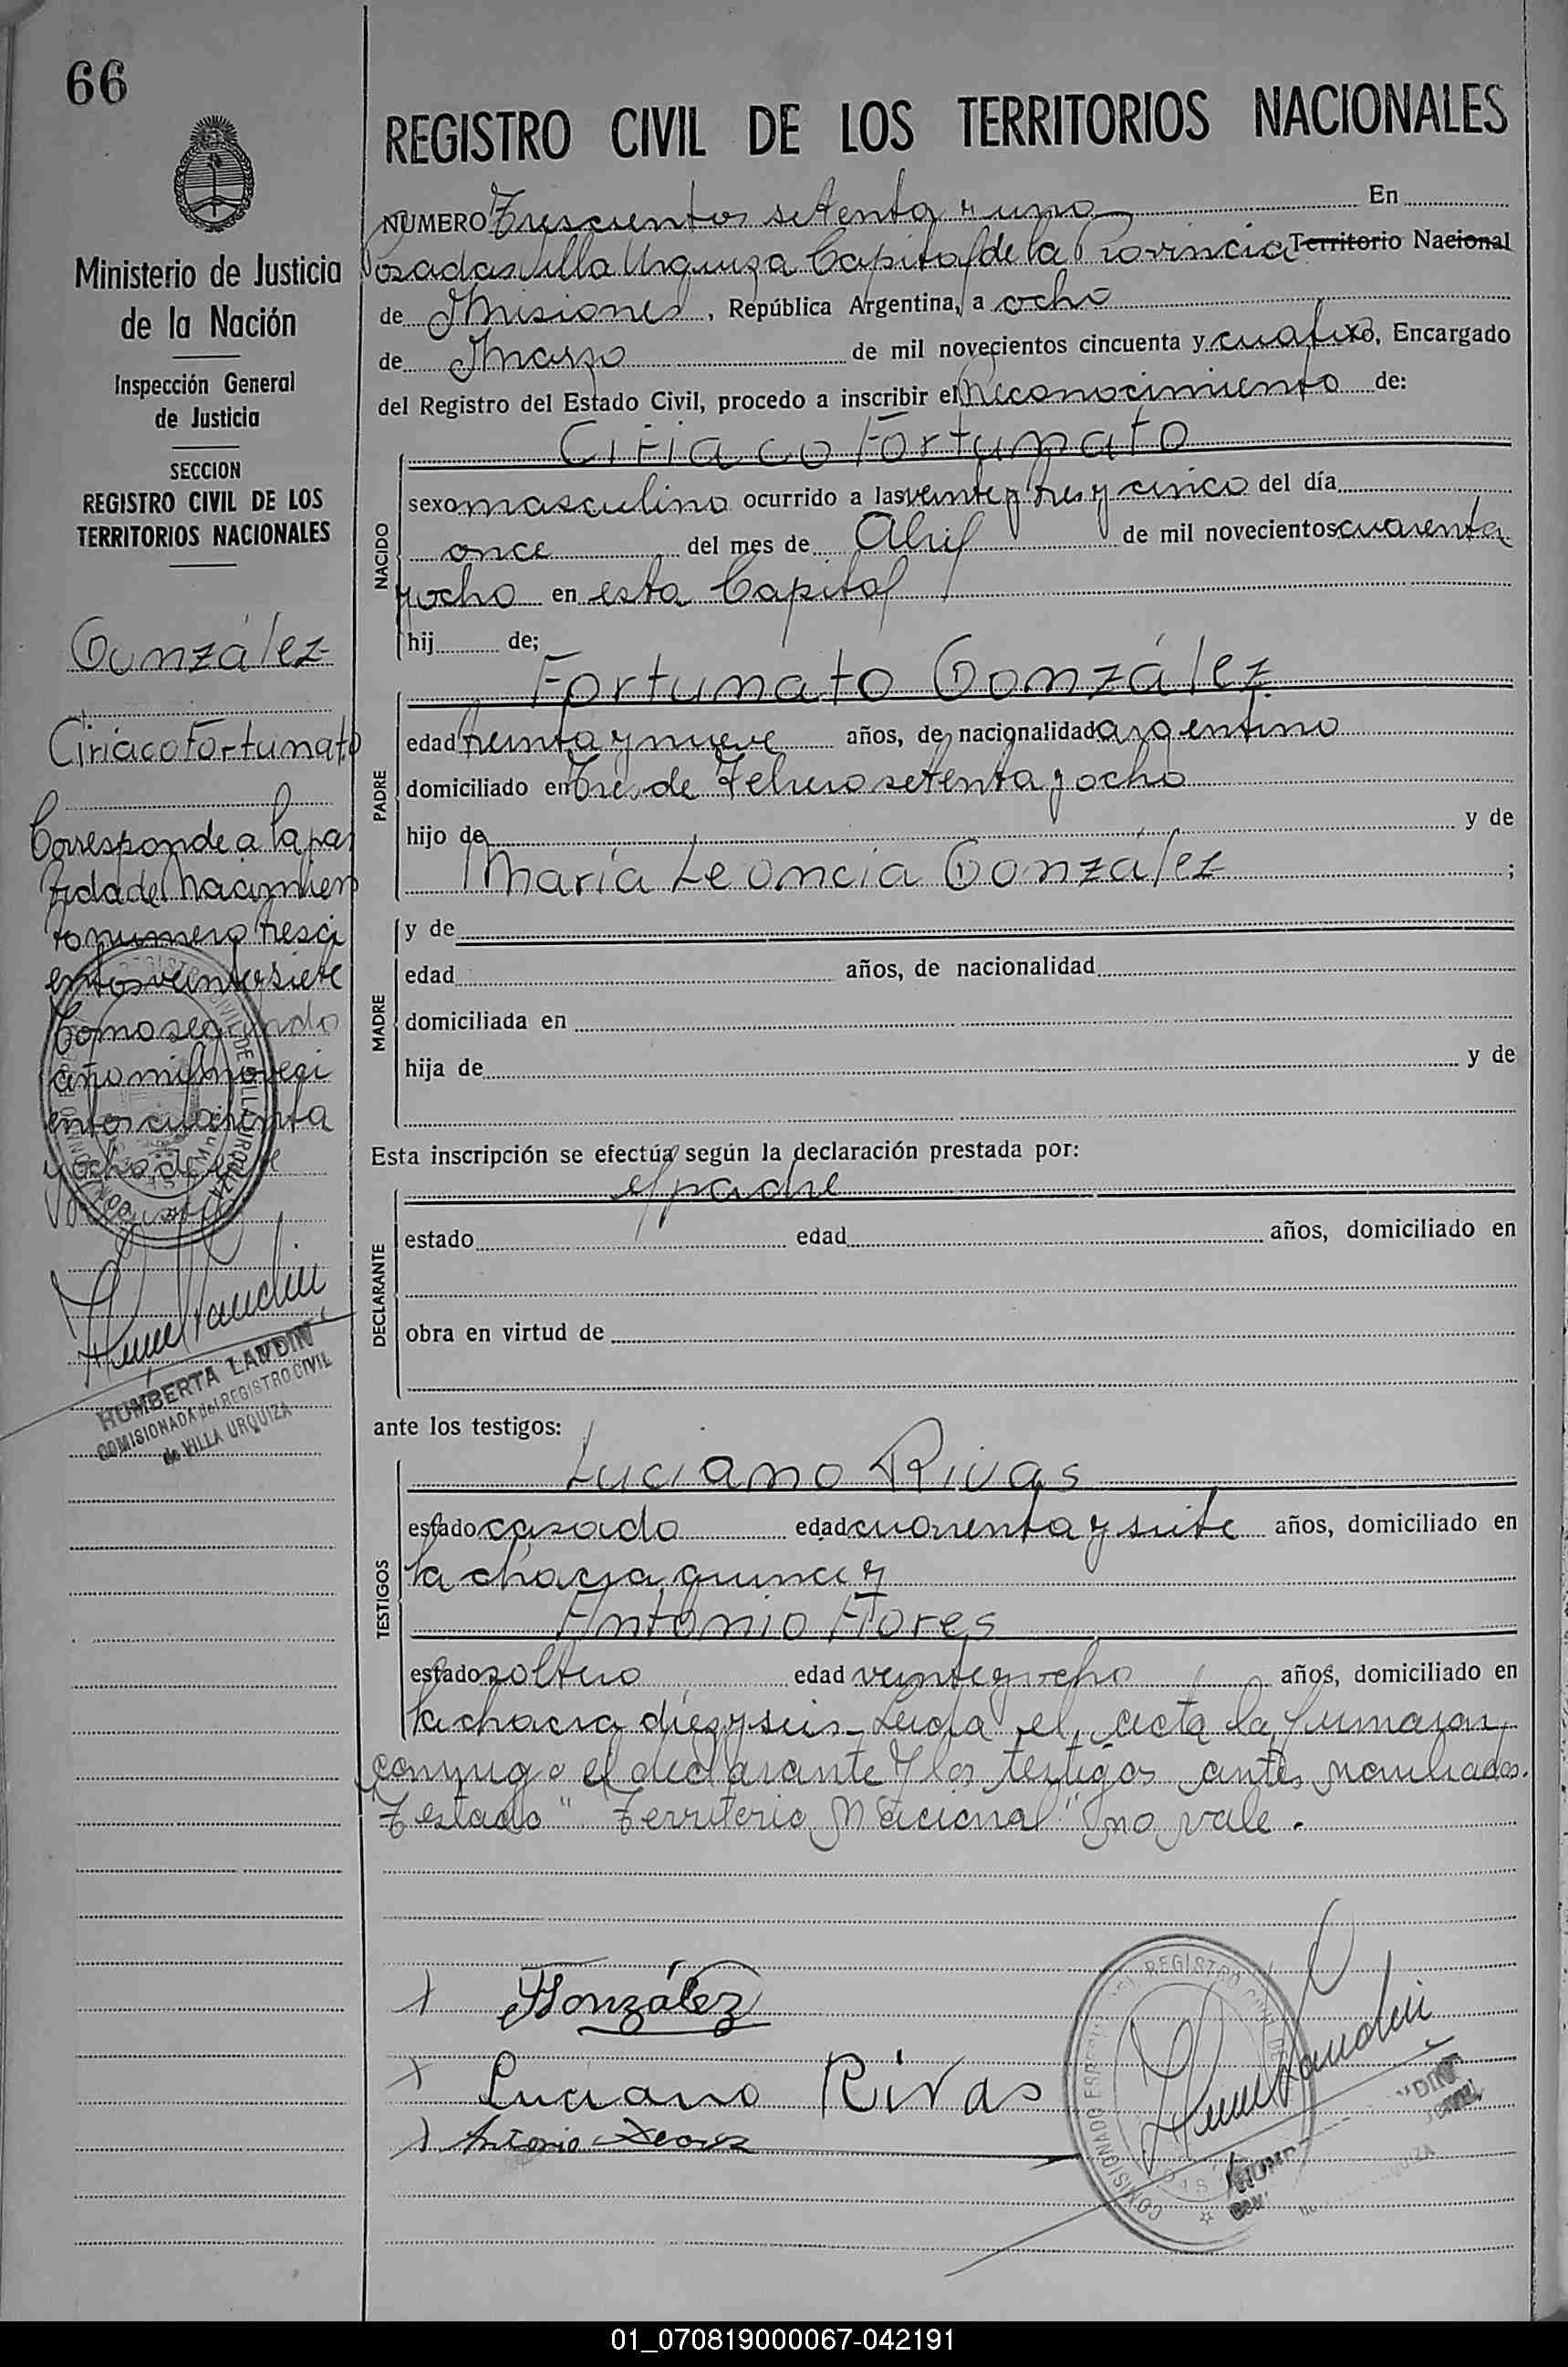 66
Ministerio de Justicia
de la Nación
Inspección General
de Justicia
SECCION
REGISTRO CIVIL DE LOS
TERRITORIOS NACIONALES
González
Ciriaco Fortunato
Corresponde a la par
tida de Nacimien
to numero tresci
entos veinte y siete
tomo segundo
año mil noveci
entos cuarenta
y ocho, de este
Registro
HUMBERTA LANDIN
COMISIONADA del REGISTRO CIVIL
de VILLA URQUIZA
REGISTRO CIVIL DE LOS TERRITORIOS NACIONALES
NUMERO Trescientos setenta y uno En
Posadas Villa Urquiza Capital de la Provincia Territorio Nacional
de Misiones, República Argentina, a ocho
de Marzo de mil novecientos cincuenta y cuatro, Encargado
del Registro del Estado Civil, procedo a inscribir el Reconocimiento de:
Ciriaco Fortunato
NACIDO
sexo masculino ocurrido a las veinte y tres y cinco del día
once del mes de Abril de mil novecientos cuarenta
y ocho en esta Capital
hij de;
PADRE
Fortunato González
edad treinta y nueve años, de nacionalidad argentino
domiciliado en Tres de Febrero setenta y ocho
hijo de y de
María Leoncia González ;
MADRE
y de
edad años, de nacionalidad
domiciliada en
hija de y de
Esta inscripción se efectúa según la declaración prestada por:
DECLARANTE
el padre
estado edad años, domiciliado en
obra en virtud de
ante los testigos:
TESTIGOS
Luciano Rivas
estado casado edad cuarenta y siete años, domiciliado en
la chacra quince y
Antonio Flores
estado soltero edad veinte y ocho años, domiciliado en
la chacra diez y seis - Leida el acta la firmaron
conmigo el declarante y los testigos antes nombrados.
Testado "Territorio Nacional" no vale.
FGonzález
Luciano Rivas
Antonio
01_070819000067-042191